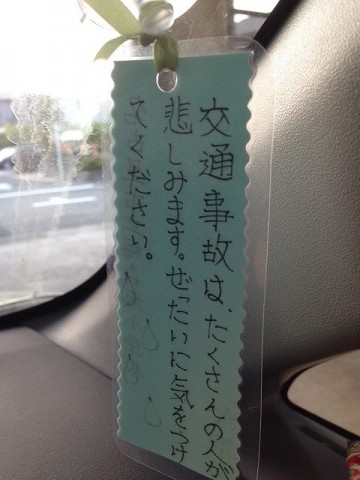 交通事故は、たくさんの人が
悲しみます。ぜったいに気をつけ
てください。